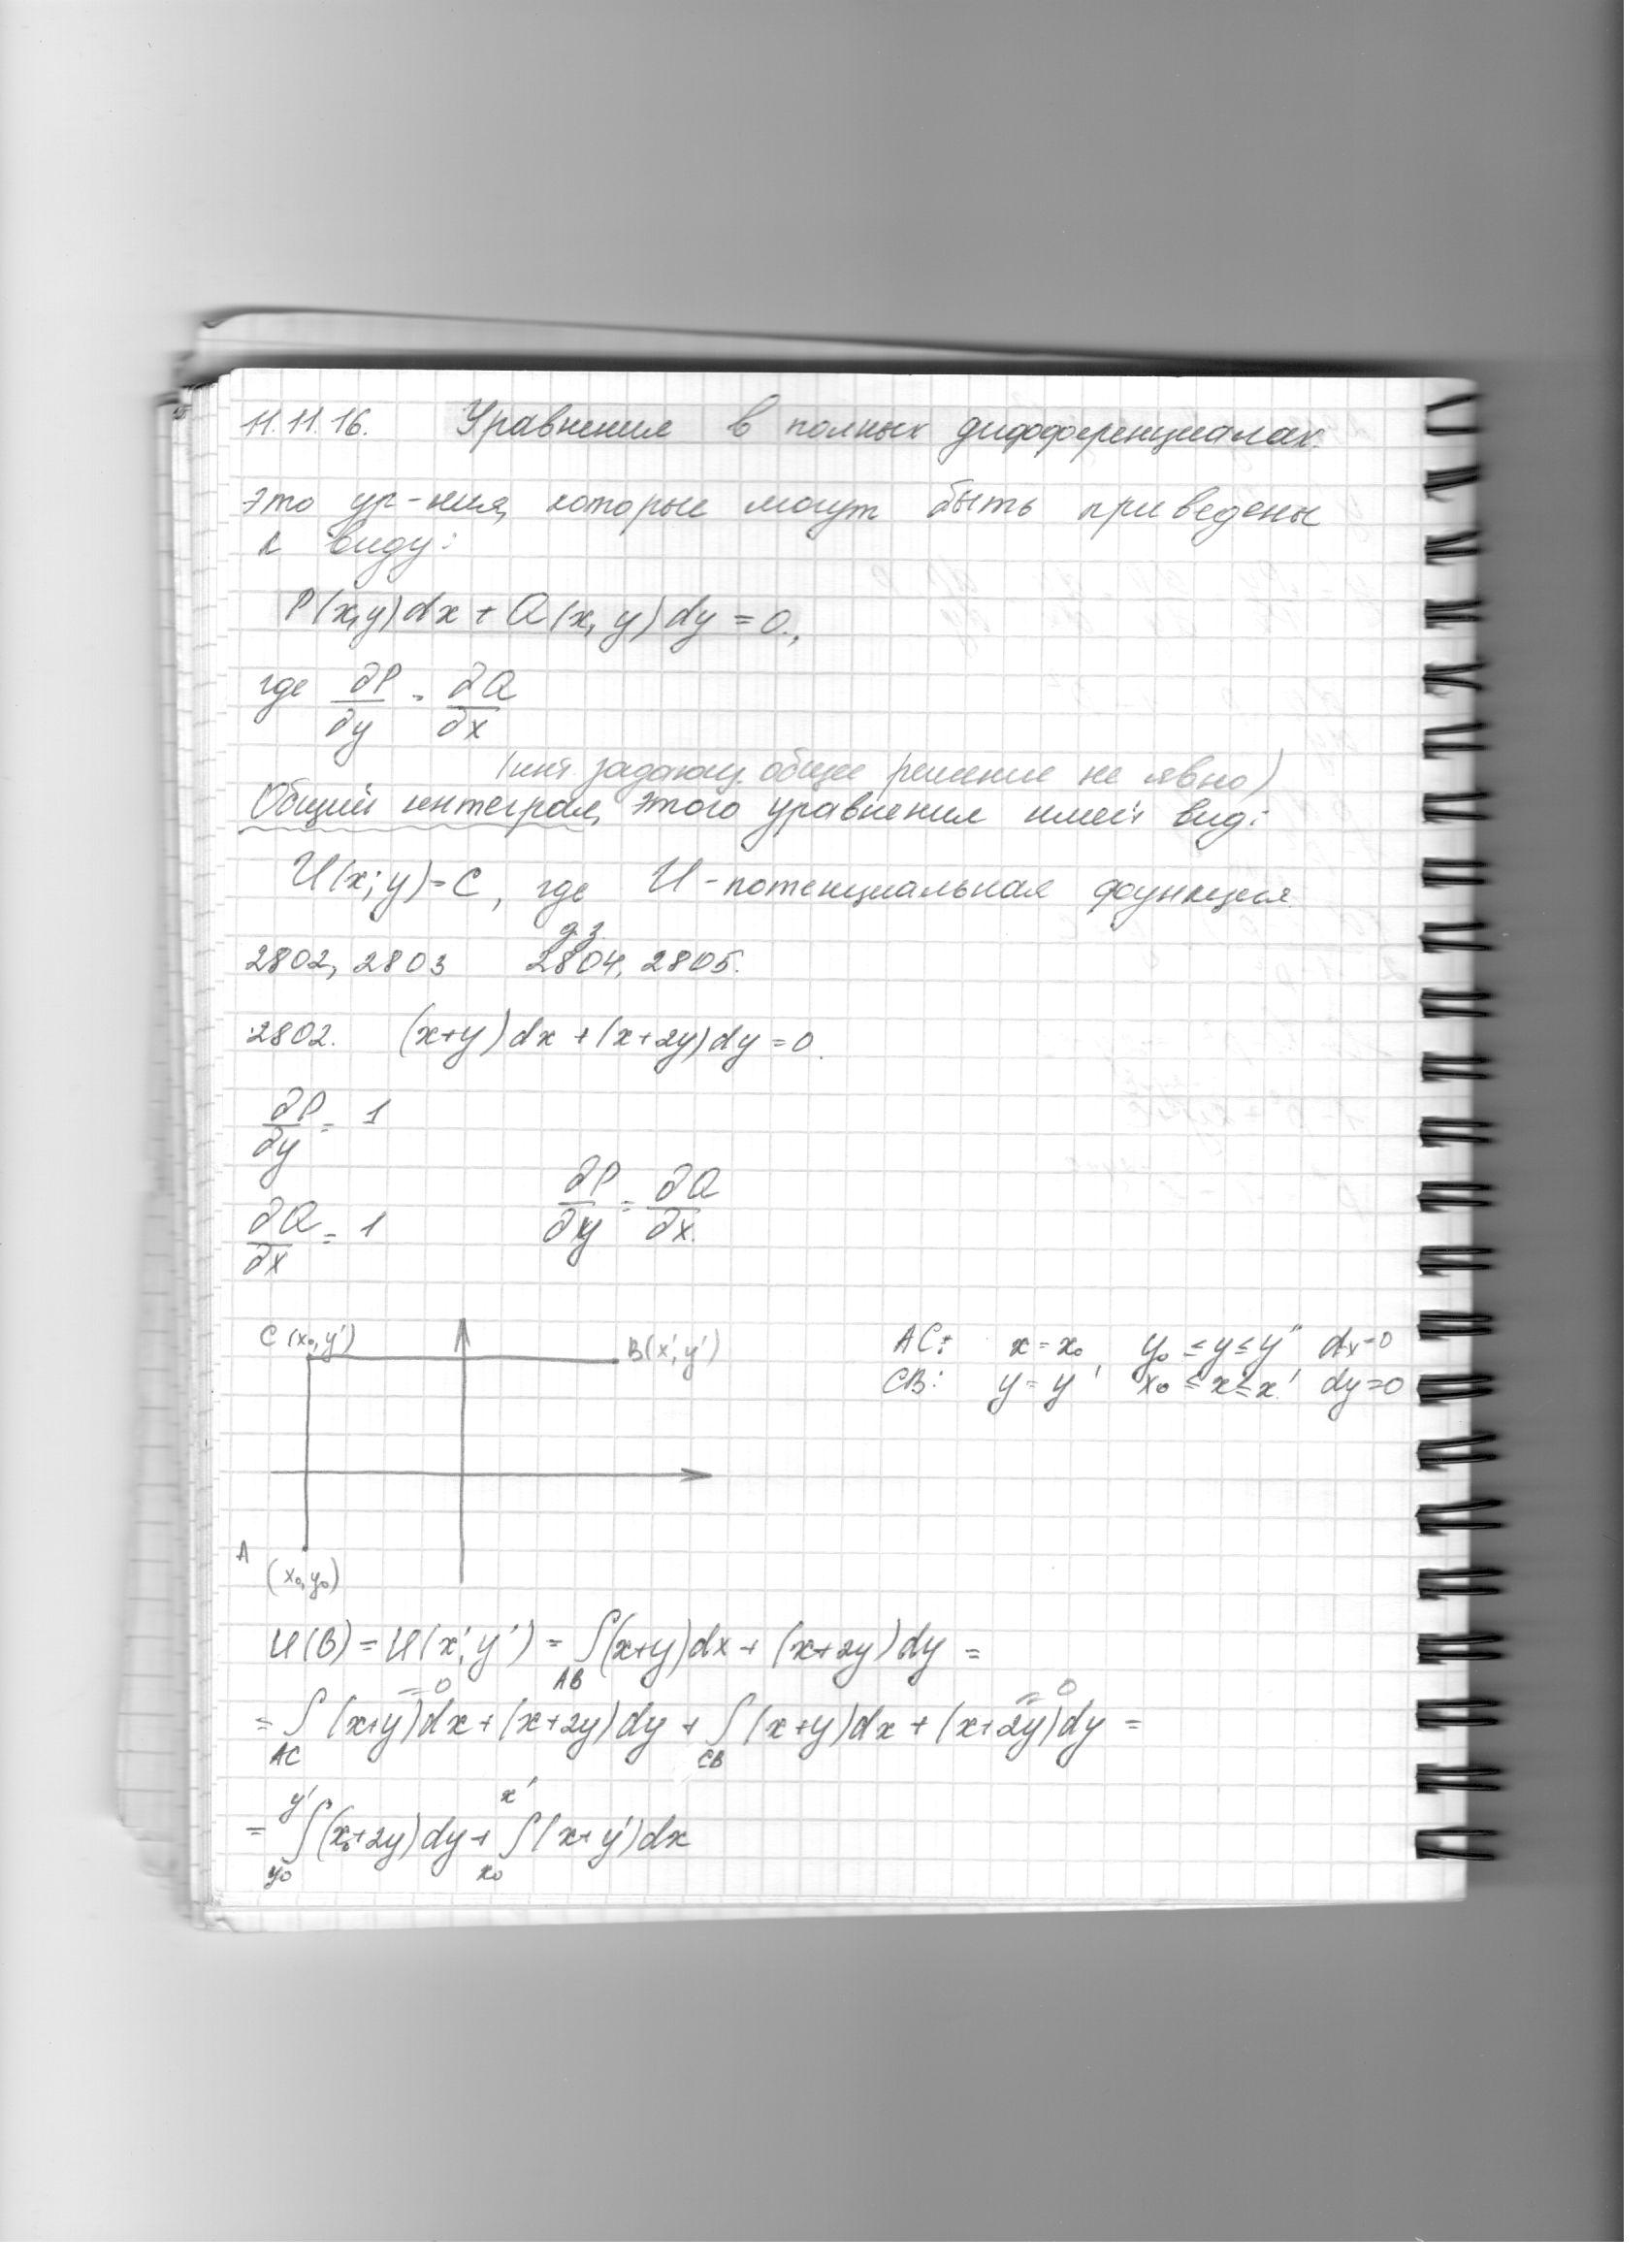 11.11.16. Уравнения в полных дифференциалах.
Это ур-ния, которые могут быть приведены
к виду:
P(x,y)dx + Q(x,y)dy = 0,
где ∂P/∂y = ∂Q/∂x
общее решение не явно)
Общий интеграл, этого уравнения имеет вид:
U(x;y)=C, где U - потенциальная функция.
д.з.
2802, 2803 2804, 2805.
2802. (x+y)dx+(x+2y)dy=0.
∂P/∂y = 1
∂P/∂y = ∂Q/∂x.
∂Q/∂x = 1
C(x₀,y') B(x',y') AC: x=x₀, y₀≤y≤y' dx=0
CB: y=y' x₀≤x≤x' dy=0
A
(x₀,y₀)
U(B)=U(x',y')= ∫AB (x+y)dx+(x+2y)dy=
=0 =0
= ∫AC (x+y)dx+(x+2y)dy+ ∫CB (x+y)dx+(x+2y)dy=
= ∫y₀y' (x₀+2y)dy+ ∫x₀x' (x+y')dx